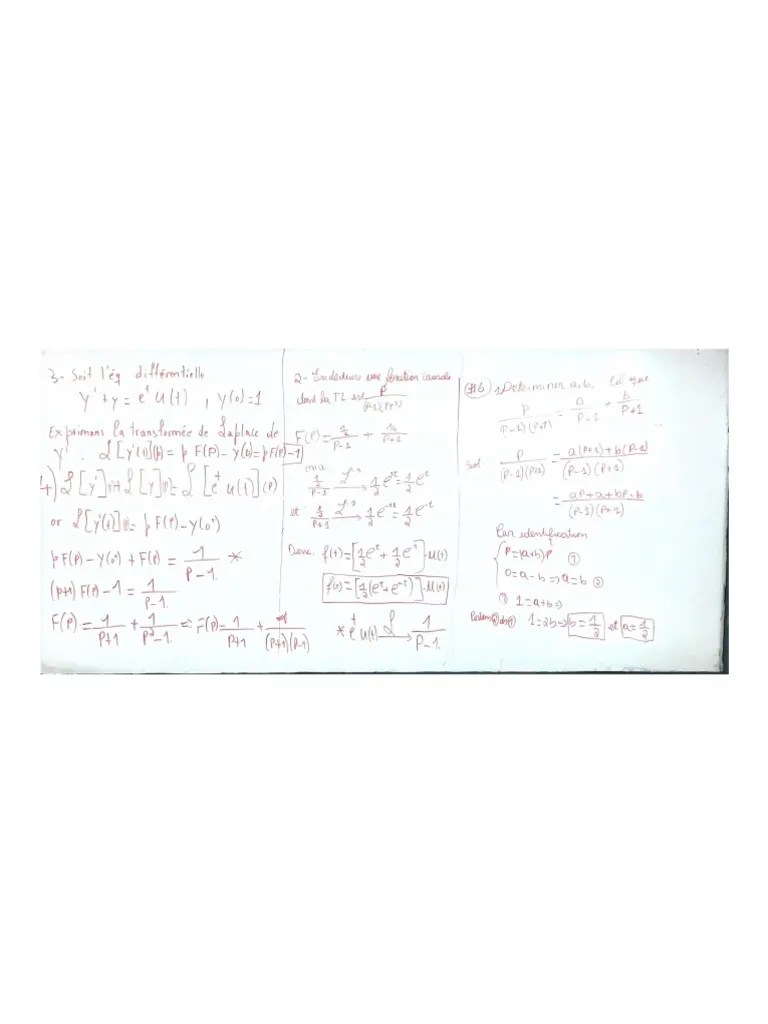 3- Soit l'éq différentielle
y' + y = e^t u(t) , y(0)=1
Exprimons la transformée de Laplace de
y' . L[y'(t)](p) = p F(p) - y(0) = p F(p) - 1
4) L[y'](p) + L[y](p) = L[e^t u(t)](p)
or L[y'(t)](p) = p F(p) - y(0+)
p F(p) - y(0+) + F(p) = 1/(p-1.) *
(p+1) F(p) - 1 = 1/(p-1.)
F(p) = 1/(p+1) + 1/(p²-1.) => F(p) = 1/(p+1) + 1/((p+1)(p-1))
2- En déduire une fonction causale
dont la TL est p/((p-1)(p+1))
F(p) = ½/(p-1) + ½/(p+1)
ona
½/(p-1) L^-1 → ½ e^1t = ½ e^t
et ½/(p+1) L^-1 → ½ e^-1t = ½ e^-t
Donc f(t) = [½ e^t + ½ e^-t] . u(t)
f(t) = [½ (e^t + e^-t)] . u(t)
* e^t u(t) L → 1/(p-1.)
#6) 1) Determiner a et b, tel que
p/((p-1)(p+1)) = a/(p-1) + b/(p+1)
Sol p/((p-1)(p+1)) = (a(p+1)+b(p-1))/((p-1)(p+1))
= (ap+a+bp-b)/((p-1)(p+1))
Par identification
{ p = (a+b)p ①
0 = a-b => a=b ②
① 1=a+b =>
② ds ① 1=2b => b=1/2 et a=1/2